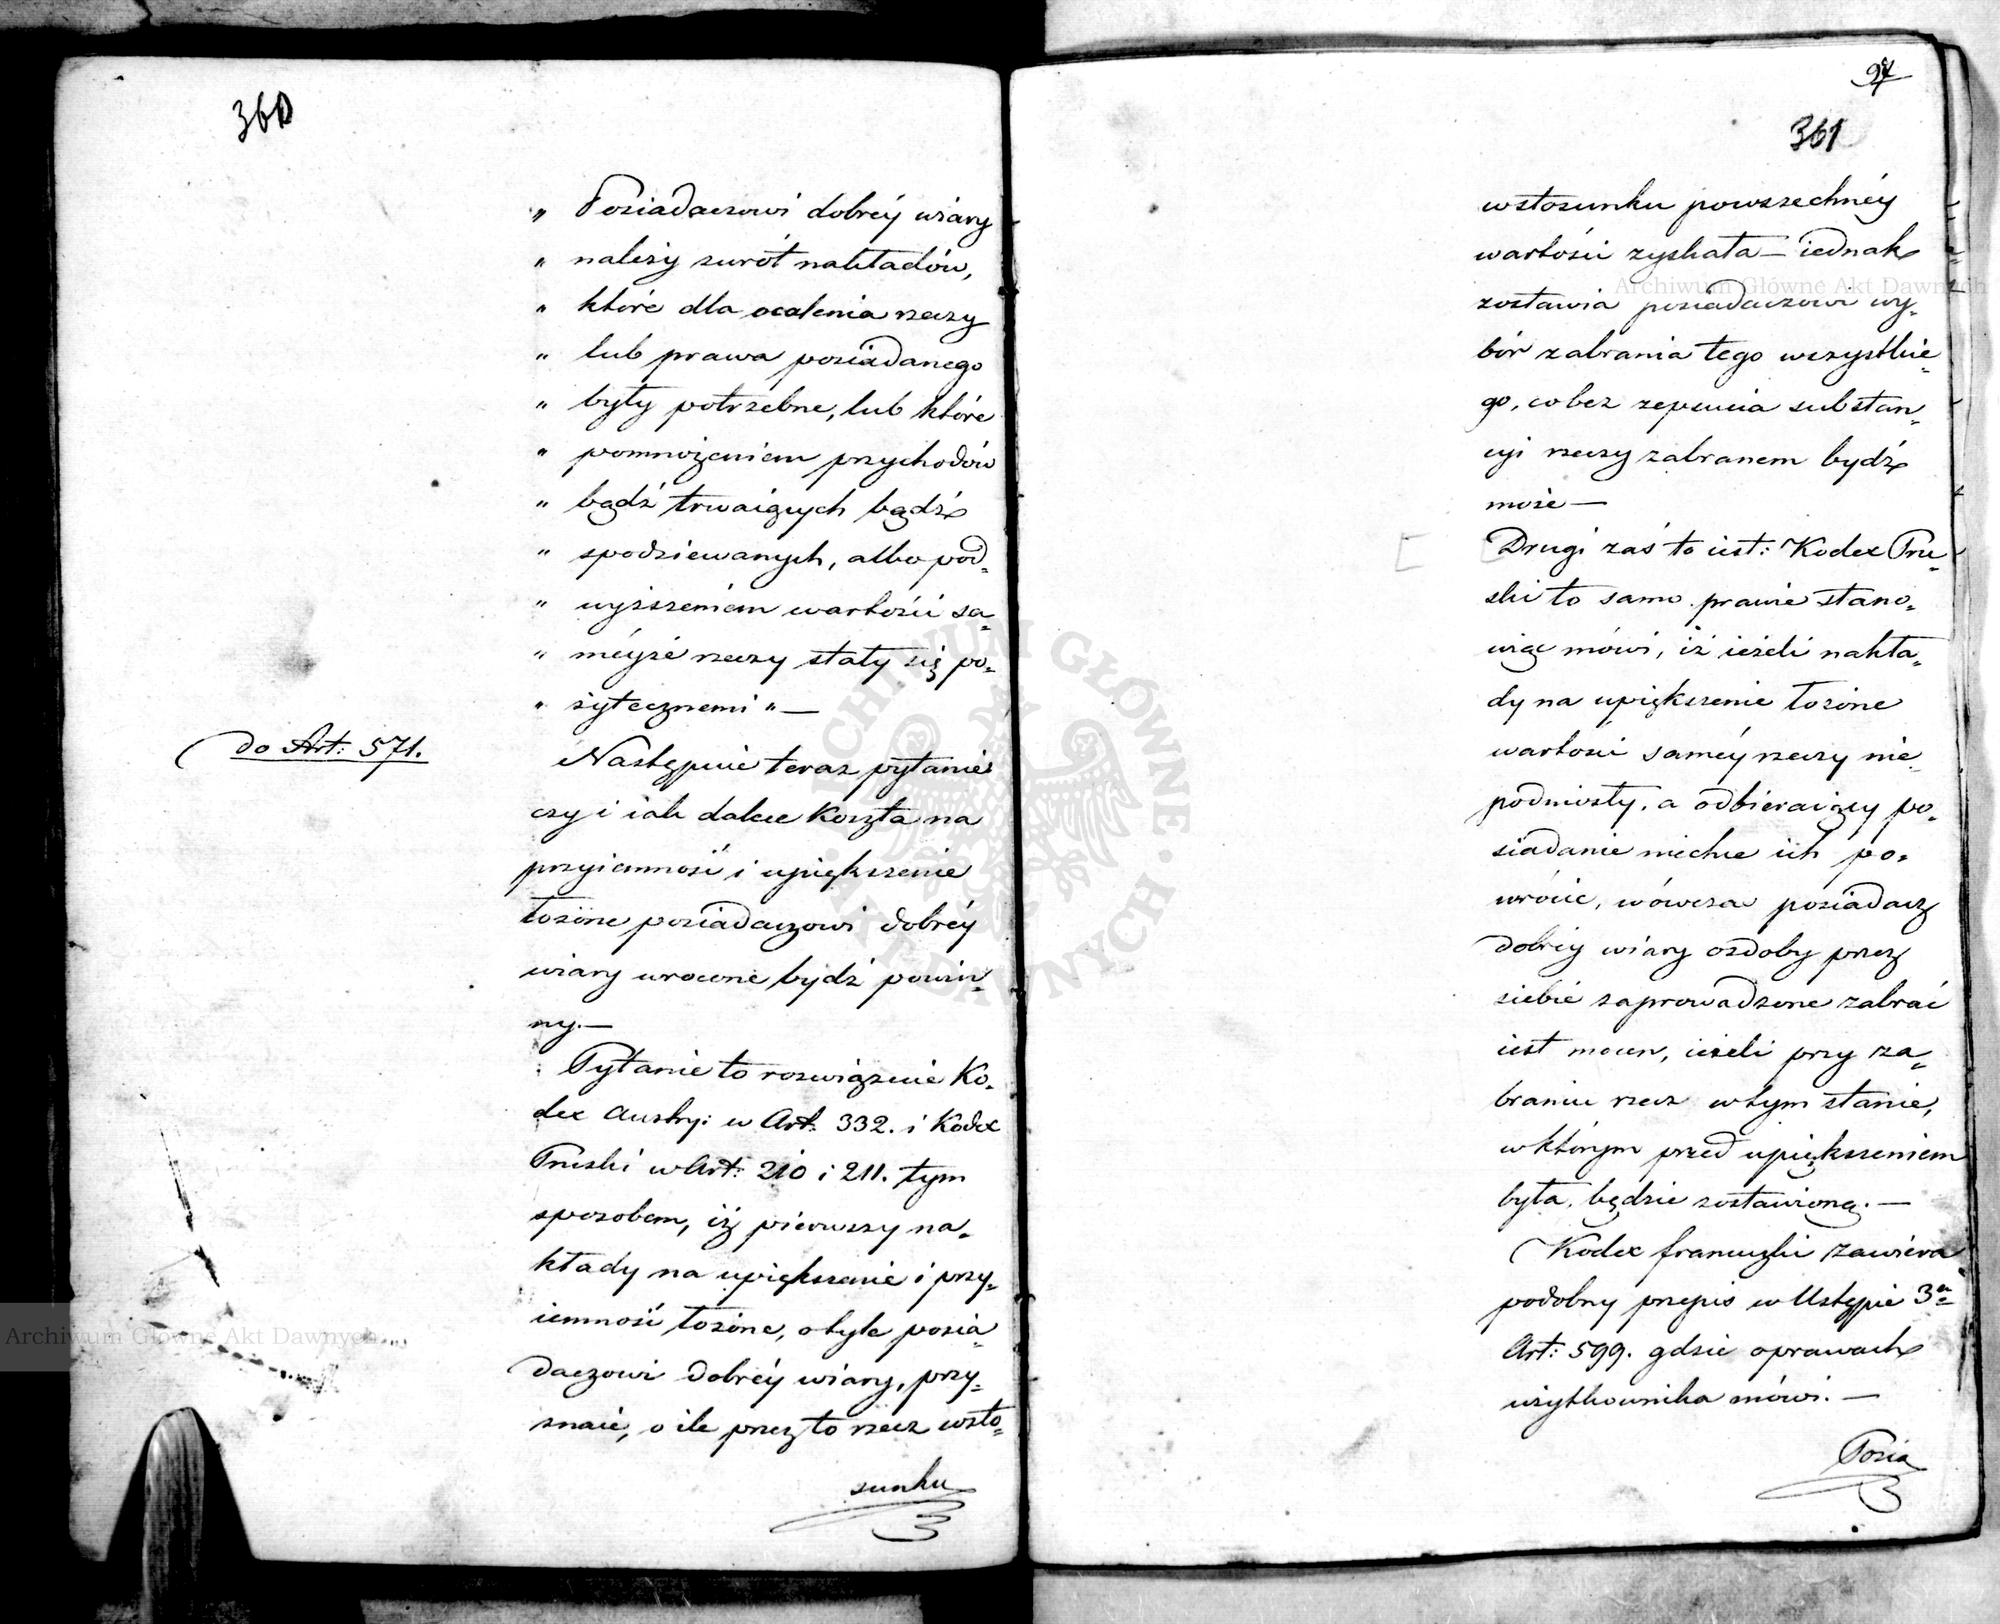 360
„ Posiadaczowi dobréy wiary
„ należy zwrót nakładów,
„ które dla ocalenia rzeczy
„ lub prawa posiadanego
„ były potrzebne, lub które
„ pomnożeniem przychodów
„ bądź trwaiących bądź
„ spodziewanych, albo pod„
„ wyższeniem wartości sa„
„ méyże rzeczy stały się po„
„ żytecznemi „ —
do Art: 571.
Następuie teraz pytanie
czy i iak dalece koszta na
przyiemność i upiększenie
łożone posiadaczowi dobréy
wiary wrocone bydź powin„
ny. —
Pytanie to rozwiązuie Ko„
dex Austry: w Art: 332. i Kodex
Pruski w Art: 210 i 211. tym
sposobem, iż pierwszy na„
kłady na upiększenie i przy„
iemność łożone, o tyle posia„
daczowi dobréy wiary, przy„
znaie, o ile przez to rzecz wsto„
sunku
97
361
wstosunku powszechnéy
wartości zyskała — iednak
zostawia posiadaczowi wy„
bór zabrania tego wszystkie„
go, co bez zepsucia substan„
cyi rzeczy zabranem bydź
może —
Drugi zaś to iest: Kodex Pru„
ski to samo prawie stano„
wiąc mówi, iż ieżeli nakła„
dy na upiększenie łożone
wartości saméy rzeczy nie„
podniosły, a odbieraiący po„
siadanie niechce ich po„
wrócić, wówczas posiadacz
dobréy wiary ozdoby przez
siebie zaprowadzone zabrać
iest mocen, ieżeli przy za„
braniu rzecz wtym stanie,
w którym przed upiększeniem
była, będzie zostawioną. —
Kodex francuzki zawiera
podobny przepis w Ustępie 3m
Art: 599. gdzie o prawach
użytkownika mówi. —
Posia
Archiwum Główne Akt Dawnych
Archiwum Główne Akt Dawnych
ARCHIWUM GŁÓWNE • AKT DAWNYCH •